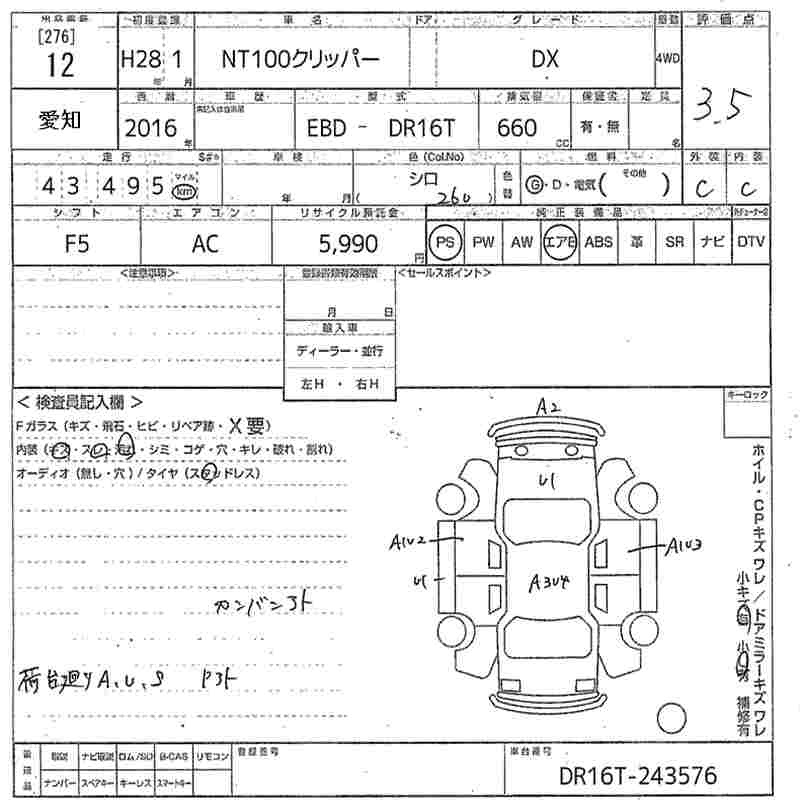 [276] 初度登録 車名 ドア グレード 駆動 評価点
12 H28 1 NT100クリッパー DX 4WD 3.5
年 月
西暦 車歴 型式 排気量 保証書 定員
愛知 2016 EBD - DR16T 660 有・無
年 CC 名
走行 S#* 車検 色(Col.No) 燃料 外装 内装
43495 マイル km 年 月 シロ 260 色替 G・D・電気( その他 ) C C
シフト エアコン リサイクル預託金 純正装備品
F5 AC 5,990 円 PS PW AW エアB ABS 革 SR ナビ DTV
<注意事項> 登録書類有効期限 <セールスポイント>
月 日
輸入車
ディーラー・並行
左H ・ 右H
< 検査員記入欄 > キーロック
Fガラス(キズ・飛石・ヒビ・リペア跡・X要)
内装(キズ・スレ・汚れ・シミ・コゲ・穴・キレ・破れ・割れ)
オーディオ(無し・穴)/タイヤ(スタッドレス)
A2
U1
A1U2
A1U3
U1
A3U4
カンバン跡
荷台廻りA、U、S
ホイル・CPキズ ワレ/ドアミラーキズ ワレ
補修有
取説 ナビ取説 ロム/SD B-CAS リモコン 登録番号 車台番号
ナンバー スペアキー キーレス スマートキー DR16T-243576